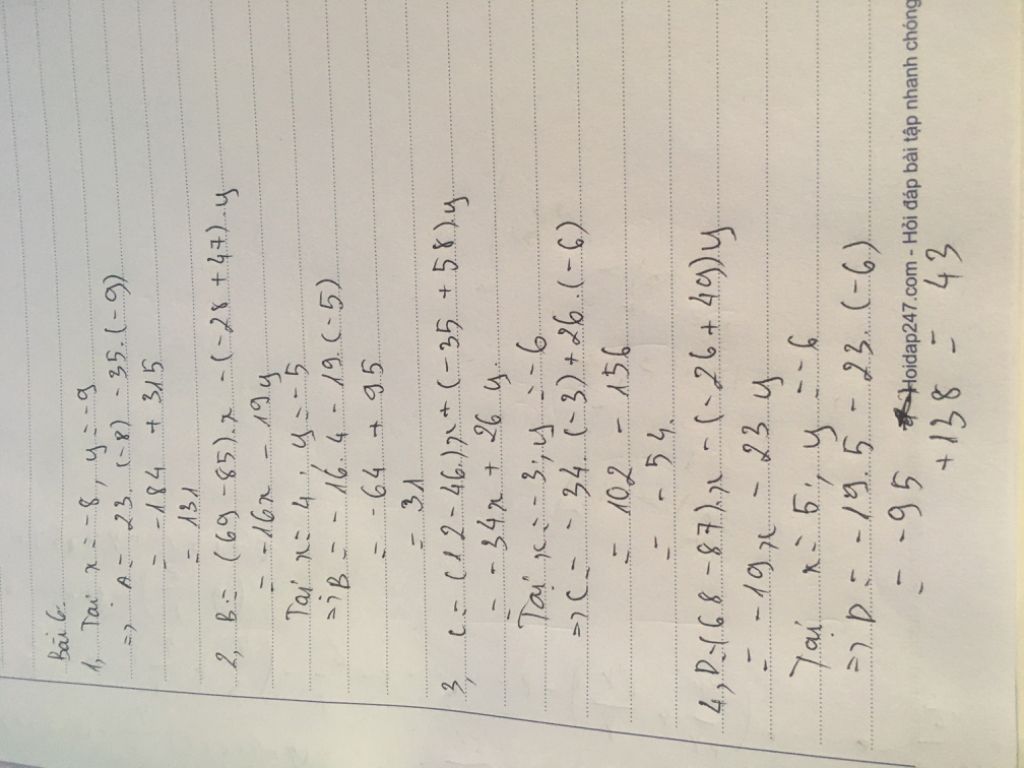 Bài 6.
1, Tại x = -8, y = -9
=> A = 23.(-8) - 35.(-9)
= -184 + 315
= 131
2, B = (69 - 85).x - (-28 + 47).y
= -16x - 19y
Tại x = 4; y = -5
=> B = -16.4 - 19.(-5)
= -64 + 95
= 31
3, C = (12 - 46).x + (-35 + 58).y
= -34x + 26 y
Tại x = -3; y = -6
=> C = -34.(-3) + 26.(-6)
= 102 - 156
= -54.
4, D = (68 - 87).x - (-26 + 49)y
= -19x - 23 y
Tại x = 5; y = -6
=> D = -19.5 - 23.(-6)
= -95 + 138 = 43
Hoidap247.com - Hỏi đáp bài tập nhanh chóng